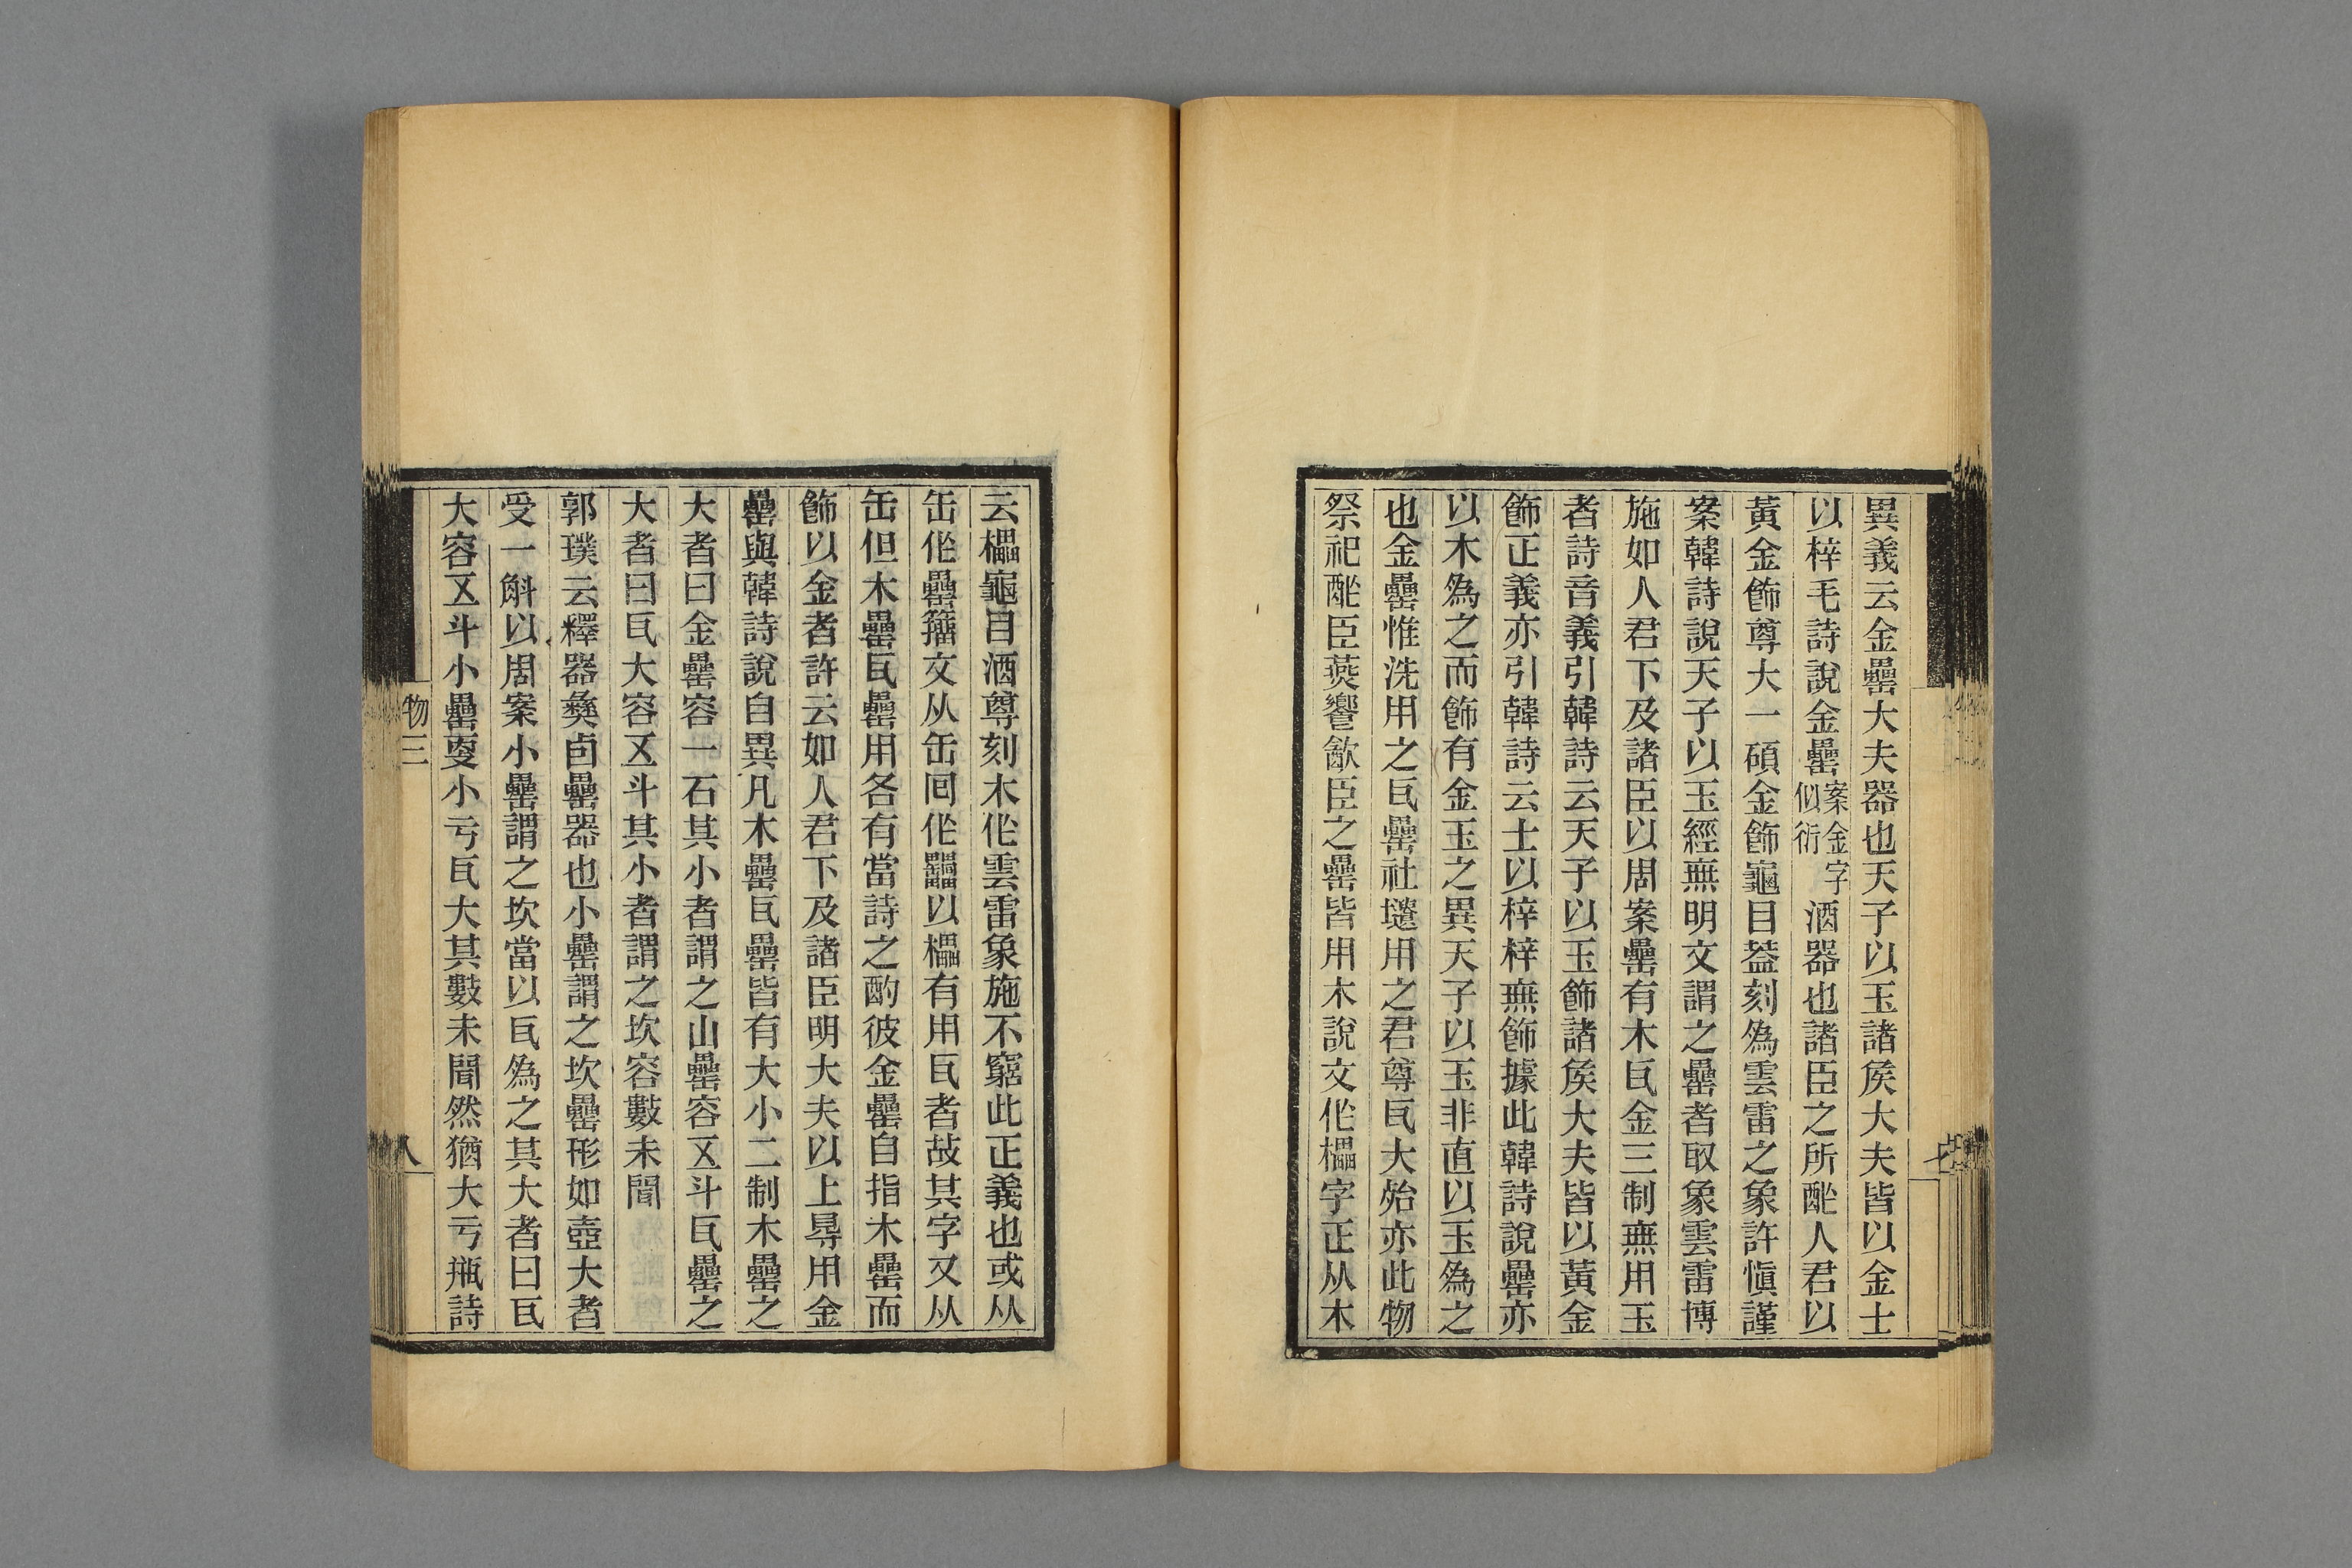 異義云金罍大夫器也天子以玉諸矦大夫皆以金士
以梓毛詩說金罍案金字似衍酒器也諸臣之所酢人君以
黃金飾尊大一碩金飾龜目葢刻為雲雷之象許愼謹
案韓詩說天子以玉經無明文謂之罍者取象雲雷博
施如人君下及諸臣以周案罍有木瓦金三制無用玉
者詩音義引韓詩云天子以玉飾諸矦大夫皆以黃金
飾正義亦引韓詩云士以梓梓無飾據此韓詩說罍亦
以木為之而飾有金玉之異天子以玉非直以玉為之
也金罍惟洗用之瓦罍社壝用之君尊瓦大殆亦此物
祭祀酢臣燕饗歙臣之罍皆用木說文作櫑字正从木
云櫑龜目酒尊刻木作雲雷象施不窮此正義也或从
缶作罍籒文从缶回作𤮚以櫑有用瓦者故其字又从
缶但木罍瓦罍用各有當詩之酌彼金罍自指木罍而
飾以金者許云如人君下及諸臣明大夫以上㝵用金
罍與韓詩說自異凡木罍瓦罍皆有大小二制木罍之
大者曰金罍容一石其小者謂之山罍容五斗瓦罍之
大者曰瓦大容五斗其小者謂之坎容數未聞
郭璞云釋器彝卣罍器也小罍謂之坎罍形如壺大者
受一斛以周案小罍謂之坎當以瓦為之其大者曰瓦
大容五斗小罍㪅小亏瓦大其數未聞然猶大亏瓶詩
物三
八